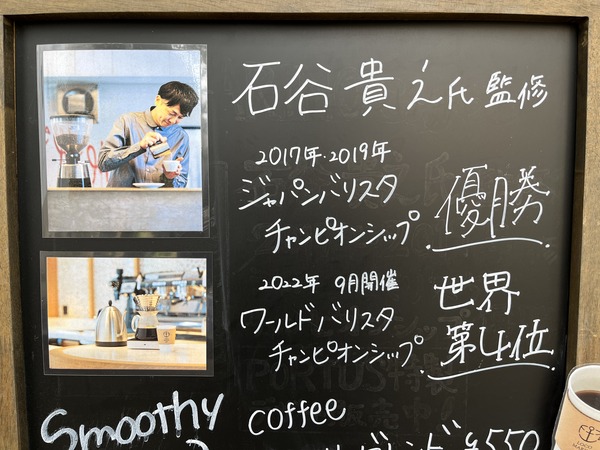 石谷 貴之氏 監修
2017年・2019年
ジャパンバリスタ
チャンピオンシップ 優勝
2022年 9月開催
ワールドバリスタ
チャンピオンシップ 世界第4位
Smoothy
coffee
ブレンド ¥550